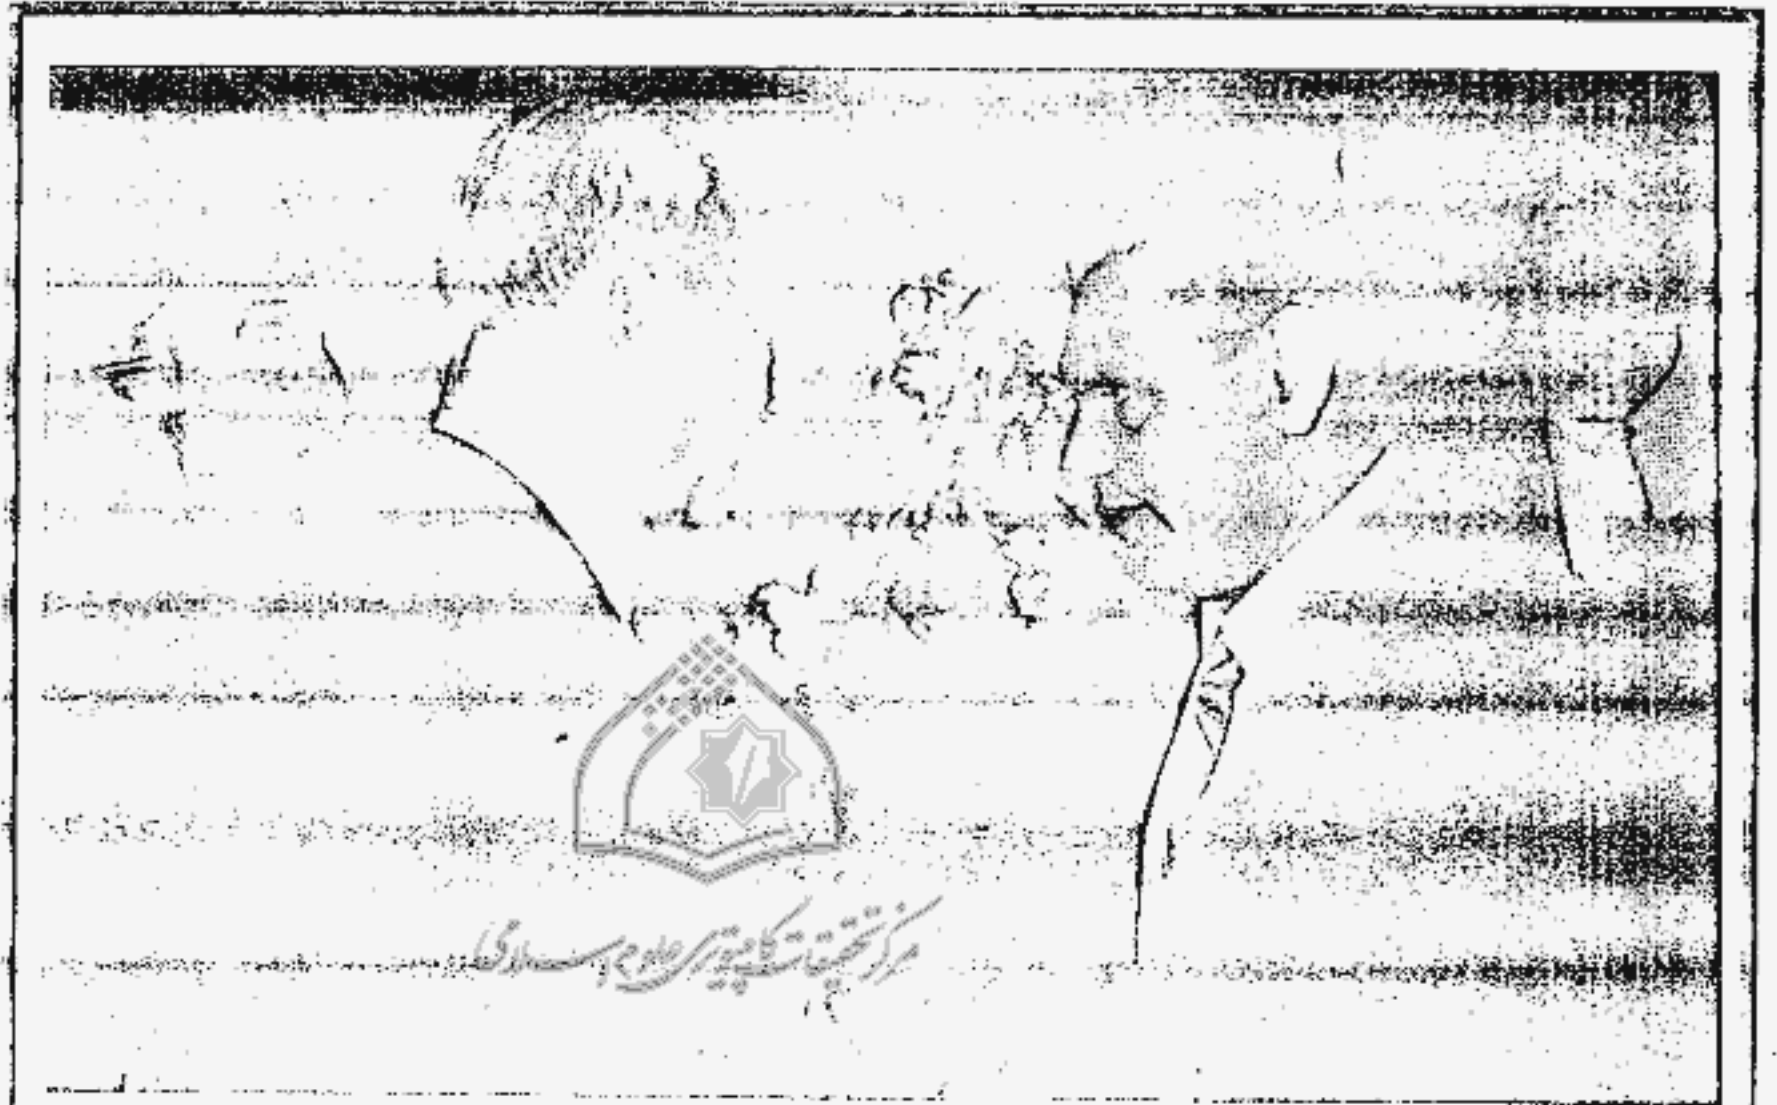 مرکز تحقیقات کامپیوتری علوم اسلامی